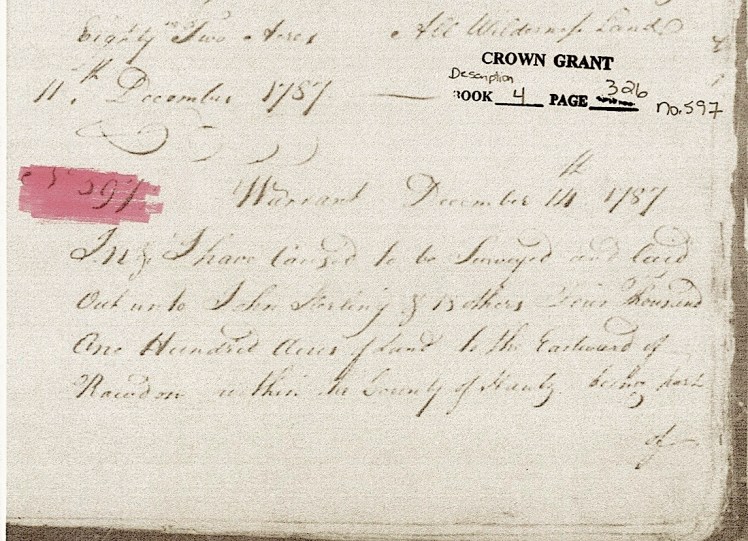 Eighty Two Acres All Wilderness Land
CROWN GRANT
Description
BOOK 4 PAGE 326 no. 597
11th December 1787
597 Warrant December 14th 1787
I have Caused to be Surveyed and laid
Out unto John Sterling & 13 others Four Thousand
One Hundred Acres of Land to the Eastward of
Rawdon within the County of Hants being part
of